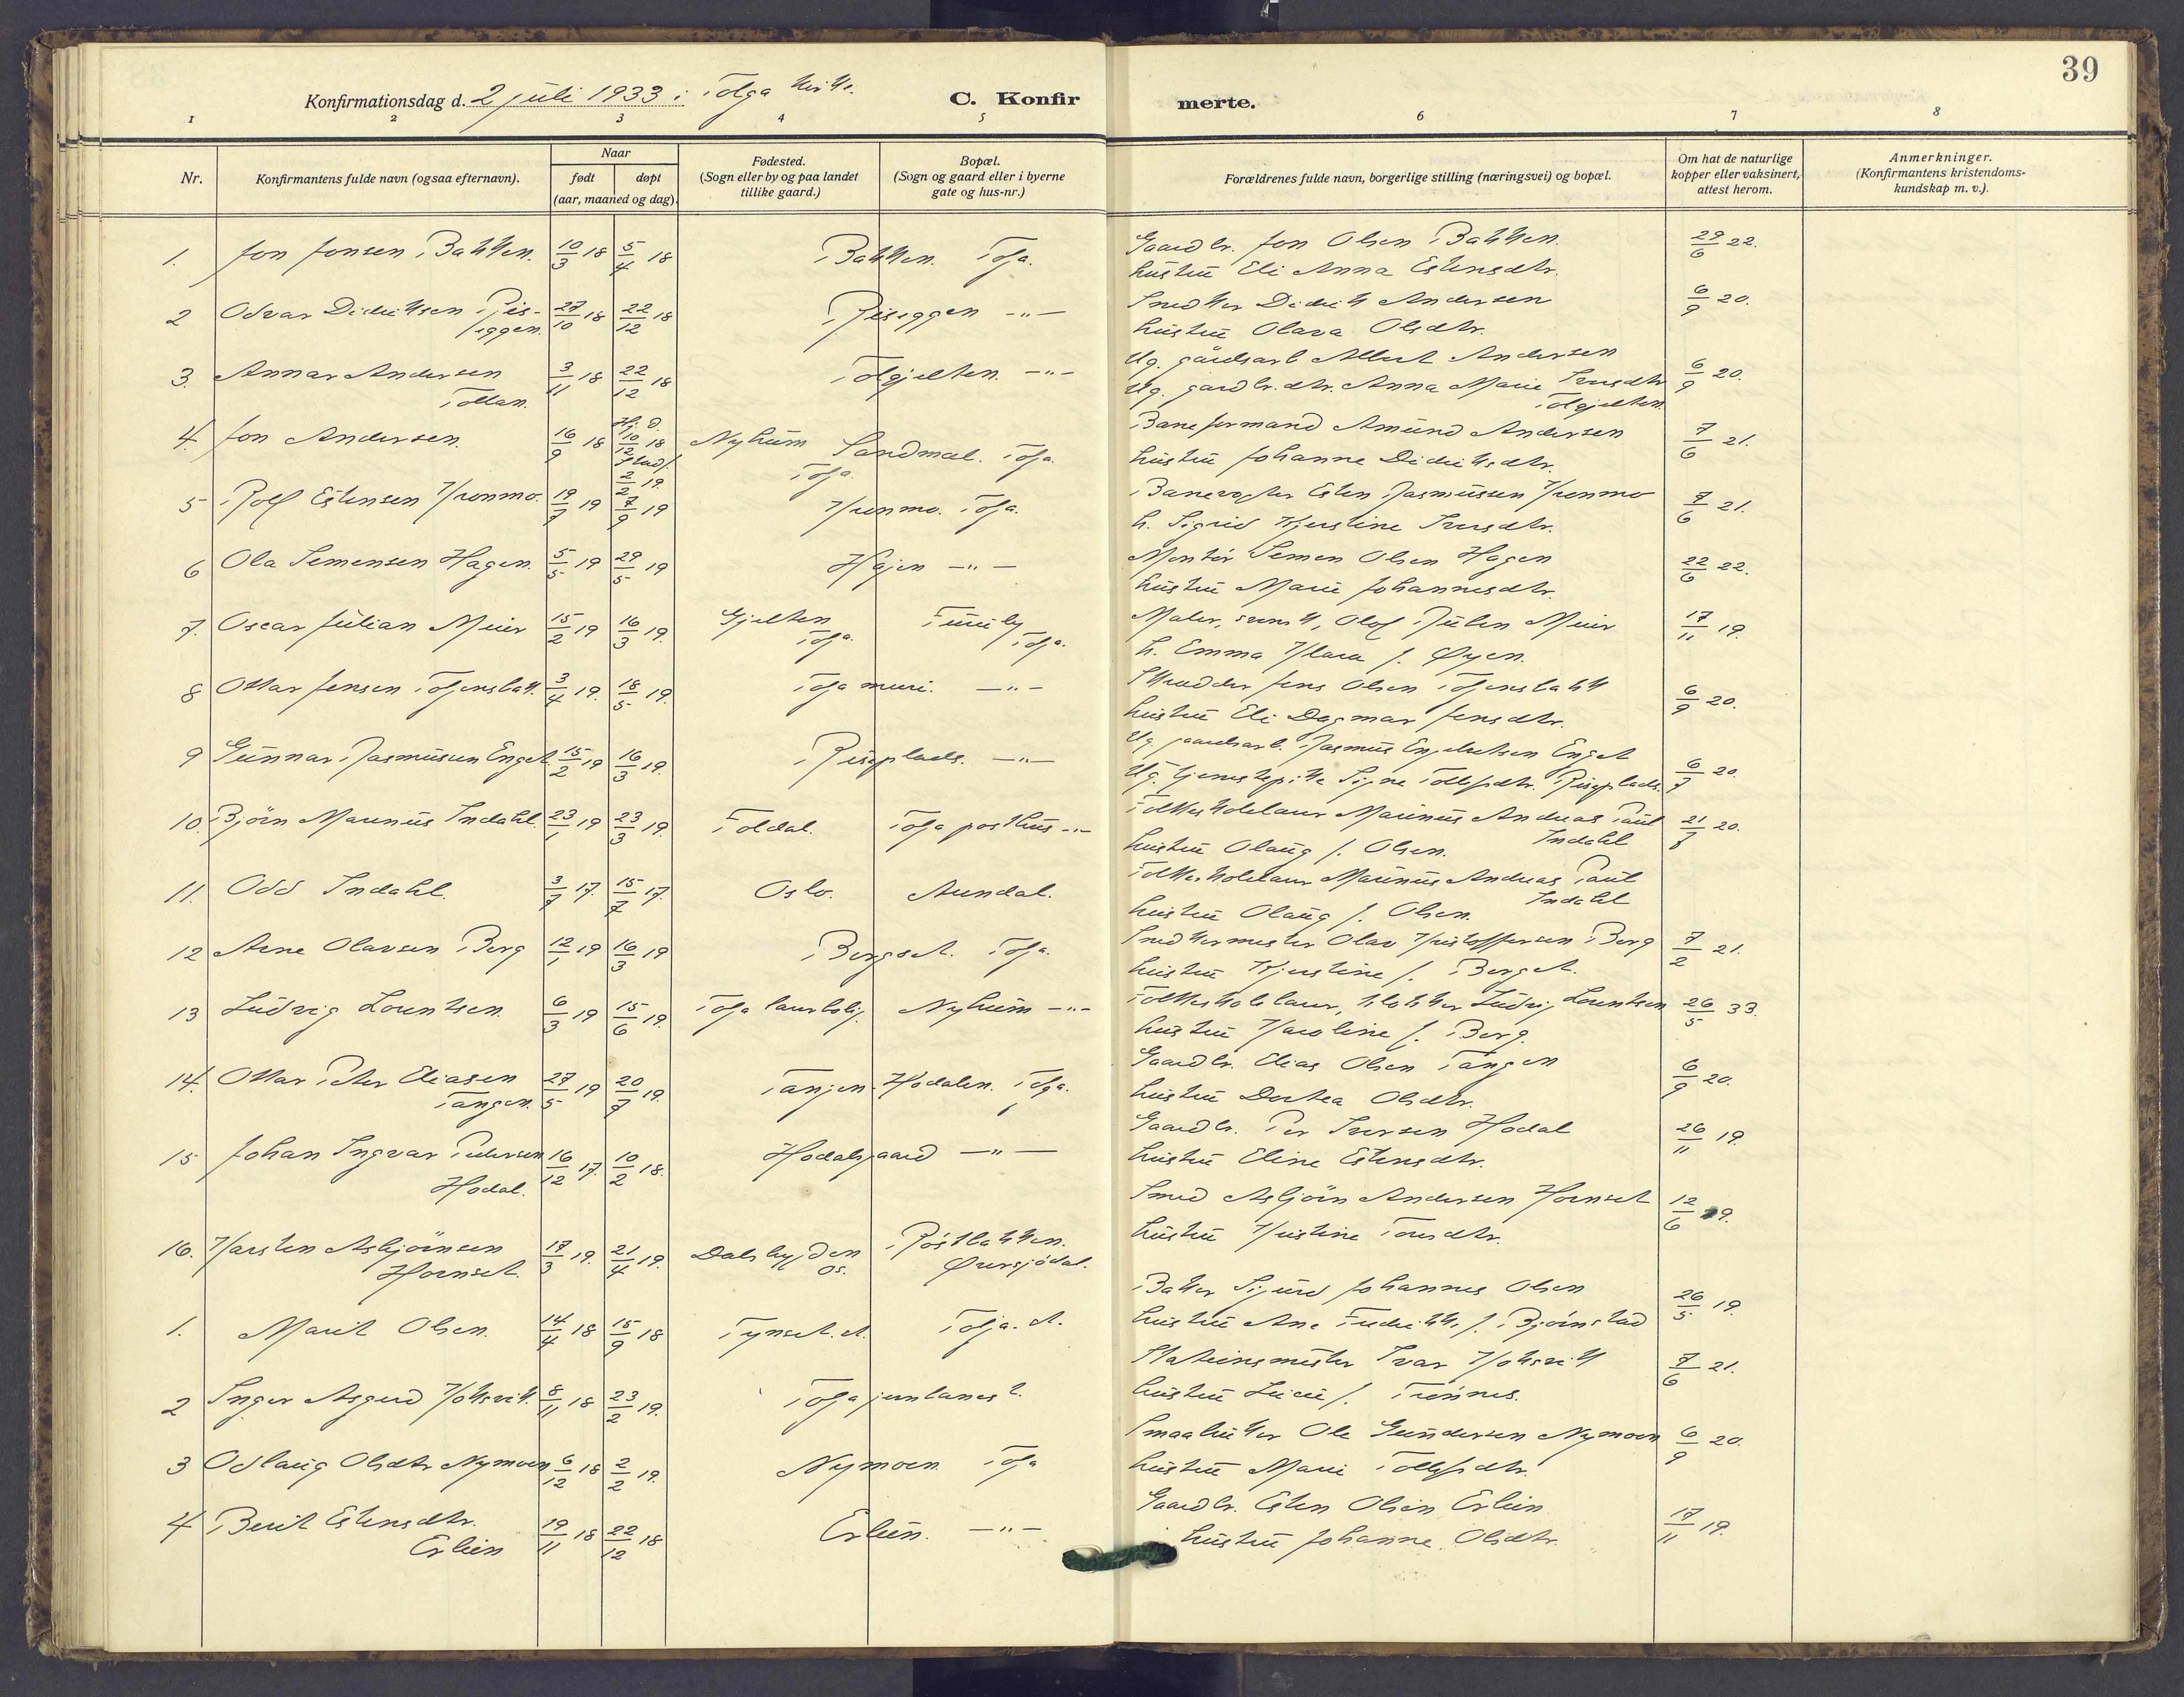 39
Konfirmationsdag d. 2 juli 1933 i Tolga kirke.
C. Konfirmerte.
1 2 3 4 5 6 7 8
Nr.
Konfirmantens fulde navn (ogsaa efternavn).
Naar
født
døpt
(aar, maaned og dag)
Fødested.
(Sogn eller by og paa landet
tillike gaard.)
Bopæl.
(Sogn og gaard eller i byerne
gate og hus-nr.)
Forældrenes fulde navn, borgerlige stilling (næringsvei) og bopæl.
Om hat de naturlige
kopper eller vaksinert,
attest herom.
Anmerkninger.
(Konfirmantens kristendoms-
kundskap m. v.).
1. Jon Jonsen Bakken. 10/3 18 5/4 18 Bakken. Tolga. Gaardbr. Jon Olsen Bakken. 29/6 22.
hustru Eli Anna Estensdtr.
2 Odvar Didriksen Ris- 27/10 18 22/12 18 Riseggen -"- Snedker Didrik Andersen 6/9 20.
eggen. hustru Olava Olsdtr.
3. Annar Andersen 3/11 18 22/12 18 Tolgjelten. -"- Ug. gårdsarb Albert Andersen 6/9 20.
Tollan. Ug. gardbr.dtr. Anna Marie Iversdtr
Tolgjelten.
4. Jon Andersen. 16/9 18 Hj. d. 10/12 18 Stadf. 2/2 19. Nyhus Tolga. Sandmæl. Tolga. Baneformand Amund Andersen 7/6 21.
hustru Johanne Didriksdtr.
5 Rolf Estensen Kronmo. 19/7 19 7/9 19 Kronmo. Tolga. Banevogter Esten Rasmussen Kronmo 7/6 21.
h. Sigrid Kjerstine Iversdtr.
6 Ola Semensen Hagen. 5/5 19 29/5 19 Hagen -"- Montør Semen Olsen Hagen 22/6 22.
hustru Marie Johannesdtr.
7. Oscar Julian Meier 15/2 19 16/3 19. Gjelten Tolga. Furuly Tolga. Maler, svensk, Olof Julen Meier 17/11 19.
h. Emma Klara f. Øyen.
8 Ottar Jensen Tolgensbakk. 3/4 19. 18/5 19. Tolga -"- Skrædder Jens Olsen Tolgensbakk 6/9 20.
hustru Eli Dagmar Jensdtr.
9 Gunnar Rasmussen Enget. 15/2 19 16/3 19. Riseplads. -"- Ug. gaardsarb. Rasmus Engebretsen Enget 6/7 20.
Ug. tjenestepike Signe Tollefsdtr. Riseplads.
10. Bjørn Marinius Indahl. 23/1 19 23/3 19. Foldal. Tolga posthus -"- Folkeskolelærer Marinius Andreas Paul 21/8 20.
Indahl
hustru Olaug f. Olsen.
11. Odd Indahl. 3/7 17. 15/7 17. Oslo. Aundal. Folkeskolelærer Marinius Andreas Paul
Indahl
hustru Olaug f. Olsen.
12 Arne Olavsen Berg 12/1 19 16/3 19 Bergset. Tolga. Snedkermester Olav Kristoffersen Berg 7/2 21.
hustru Kjerstine f. Berget.
13 Ludvig Lorentsen. 6/3 19 15/6 19. Tolga lærerbolig. Nyhus -"- Folkeskolelærer, klokker Ludvig Lorentsen 26/5 33.
hustru Karoline f. Berg.
14. Ottar Peter Eliasen 27/5 19 20/7 19. Tangen Hodalen. Tolga. Gaardbr. Elias Olsen Tangen 6/9 20.
Tangen. hustru Dortea Olsdtr.
15 Johan Ingvar Pedersen 16/12 17. 10/2 18. Hodalsgaard -"- Gaardbr. Per Iversen Hodal 26/11 19.
Hodal. hustru Eline Estensdtr.
16. Karsten Asbjørnsen 17/3 19. 21/4 19. Dalsbygden Os. Røstbakken. Øversjødal. Smed Asbjørn Andersen Hornset 12/6 29.
Hornset. hustru Kristine Toresdtr.
1. Marit Olsen. 14/4 18 15/9 18 Tynset. st. Tolga. st. Baker Sigurd Johannes Olsen 26/5 19.
hustru Ane Fredrikke f. Bjørnstad
2 Inger Asgerd Koksvik. 8/11 18 23/2 19. Tolga jernbanest. Stationsmester Ivar Koksvik 7/6 21.
hustru Lucie f. Trønnes.
3 Odlaug Olsdtr Nymoen 6/12 18 2/2 19. Nymoen. Tolga Smaabruker Ole Gundersen Nymoen 6/9 20.
hustru Marie Tollefsdtr.
4 Berit Estensdtr. 19/11 18 22/12 18 Erlien. -"- Gaardbr. Esten Olsen Erlien 17/11 19.
Erlien hustru Johanne Olsdtr.